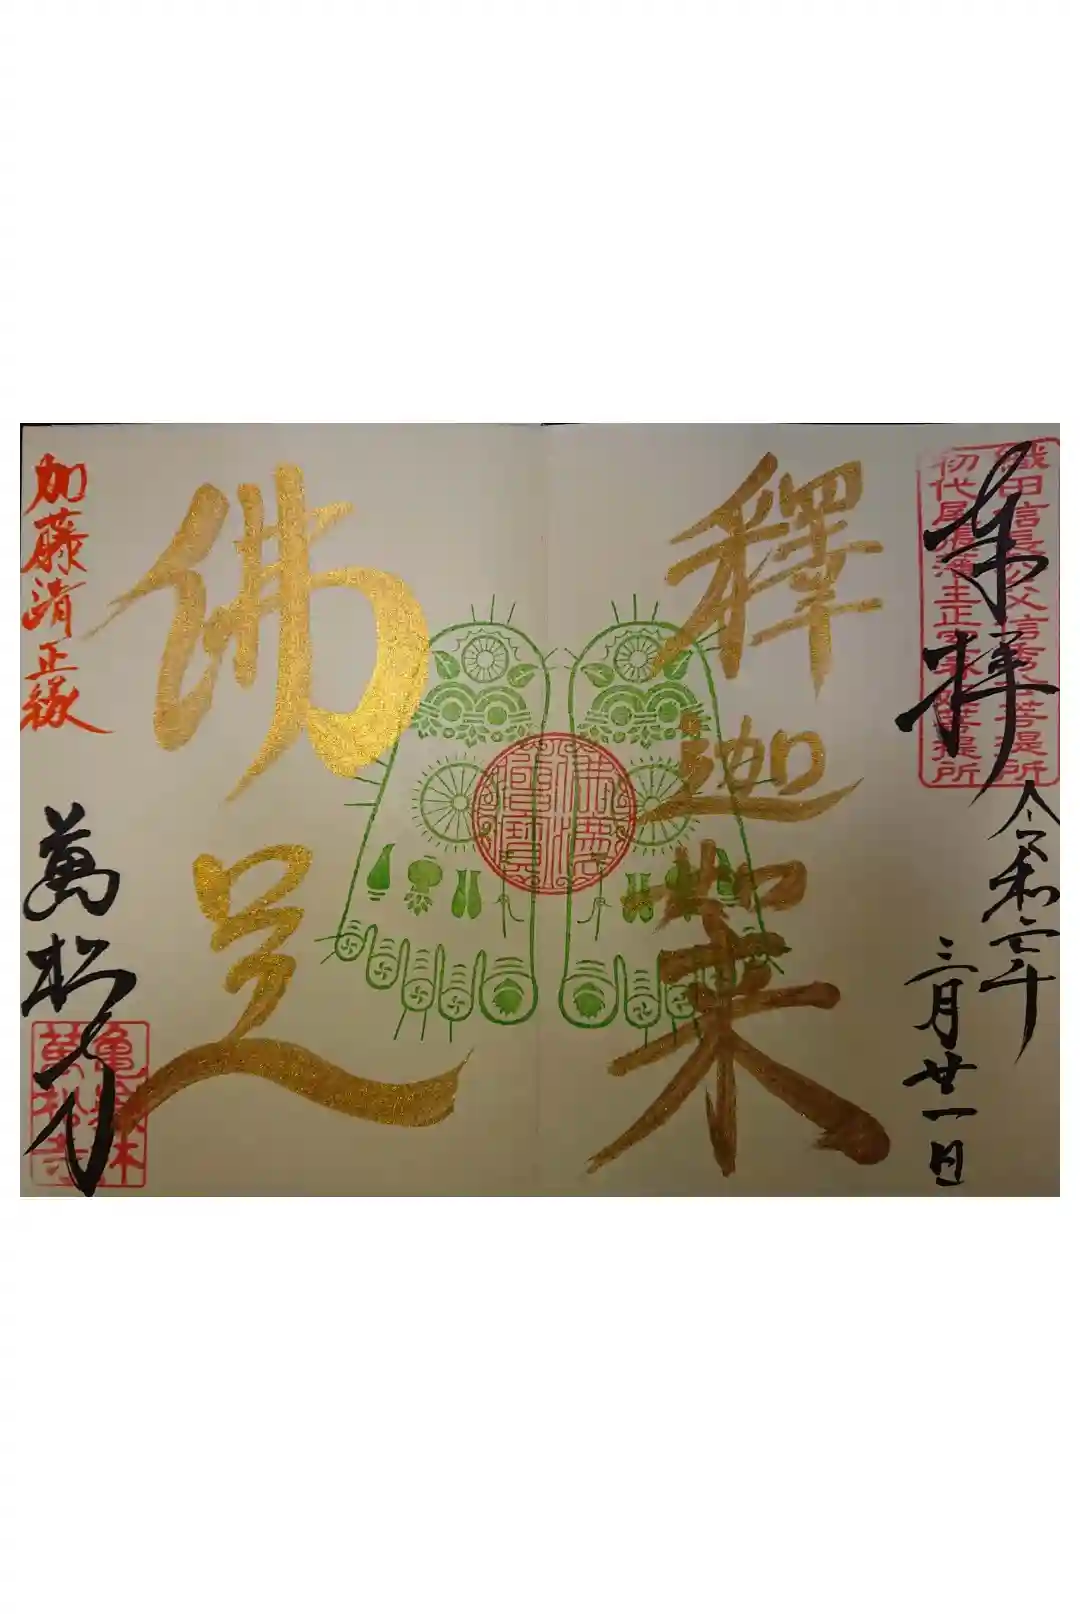 織田信長公父信秀公菩提所
初代尾張藩主正室春姫菩提所
奉拝
令和二年
三月廿一日
釋迦如来
佛足
加藤清正縁
萬松寺
亀嶽林
萬松寺